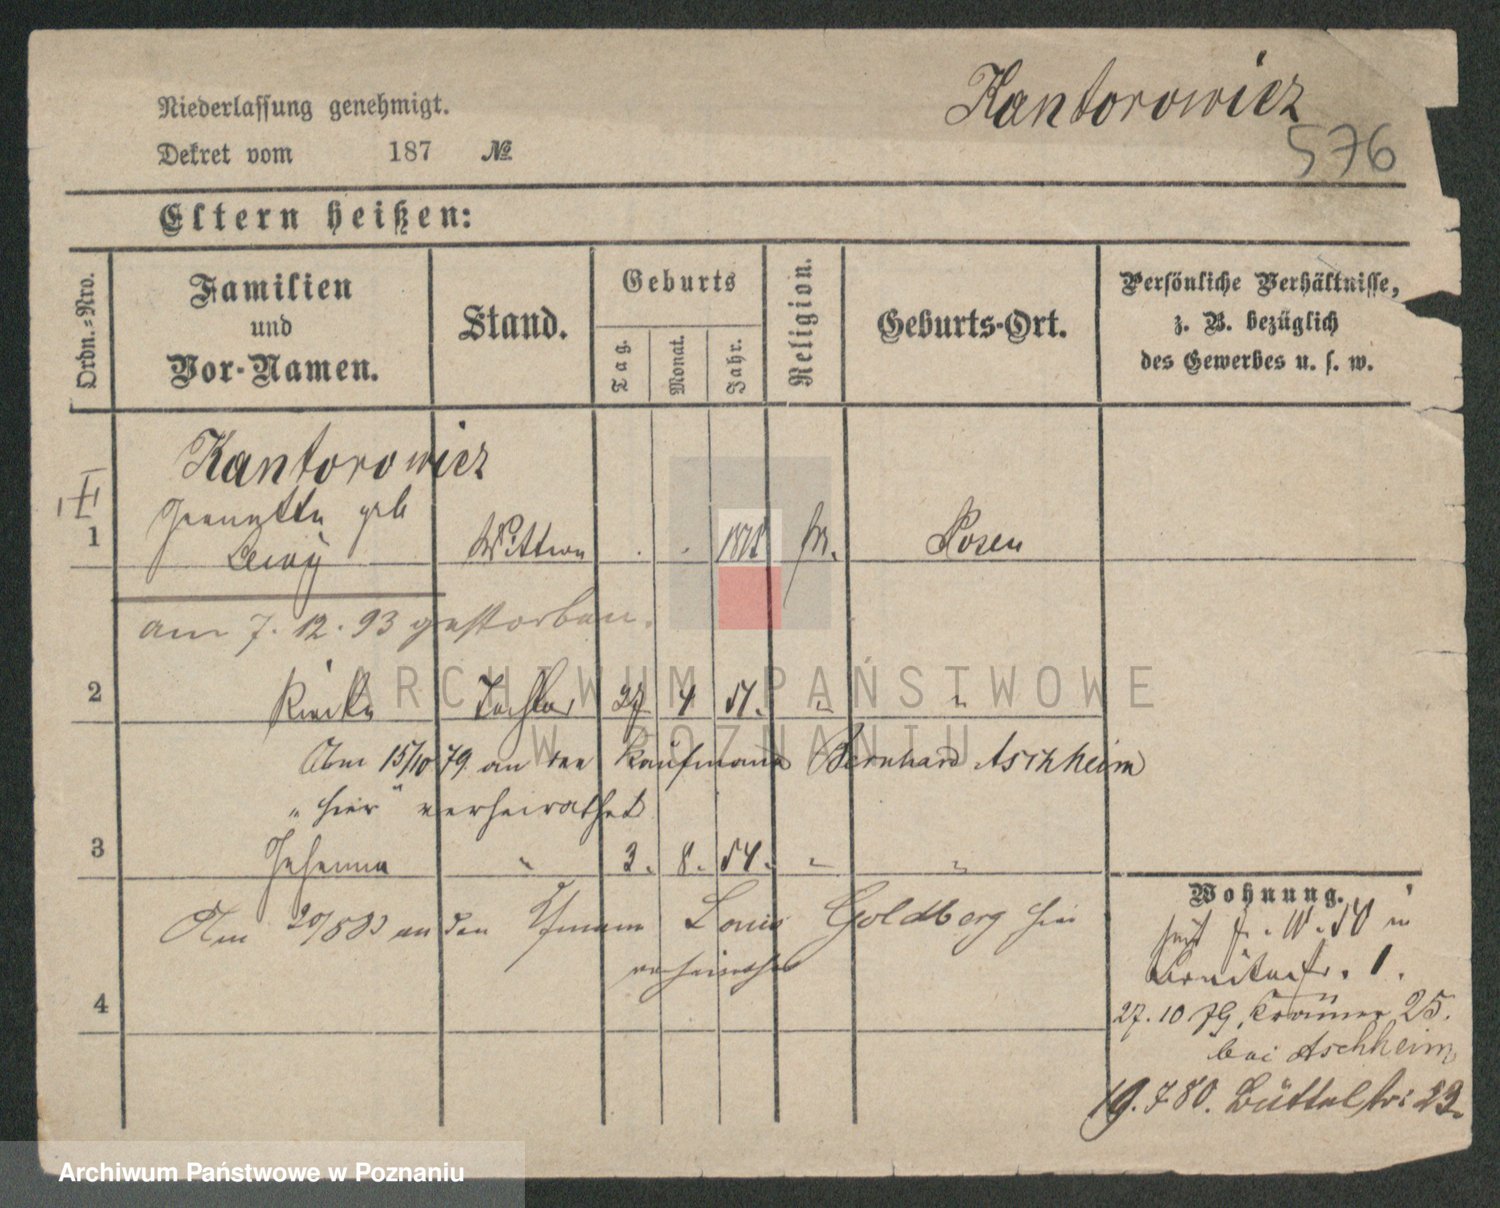 Niederlassung genehmigt.
Kantorowicz
Dekret vom 187 №
576
Eltern heißen:
Ordn.-Nro.
Familien und Vor-Namen.
Stand.
Geburts
Tag.
Monat.
Jahr.
Religion.
Geburts-Ort.
Persönliche Verhältnisse,
z. B. bezüglich
des Gewerbes u. s. w.
Kantorowicz
1 geb
Lewy Wittwe Posen
am 7. 12. 93 gestorben.
2 Tochter 27 4 51. " "
Am 15/10 79. an den Kaufmann Bernhard Aschheim
"hier" verheirathet
3 Johanna " 3. 8. 54. " "
Am an den Louis Goldberg hier
verheirathet
4
Wohnung.
1.
27. 10 79. Krämer 25.
bei Aschheim
19. 7 80. Büttelstr: 23.
ARCHIWUM PAŃSTWOWE
W POZNANIU
Archiwum Państwowe w Poznaniu